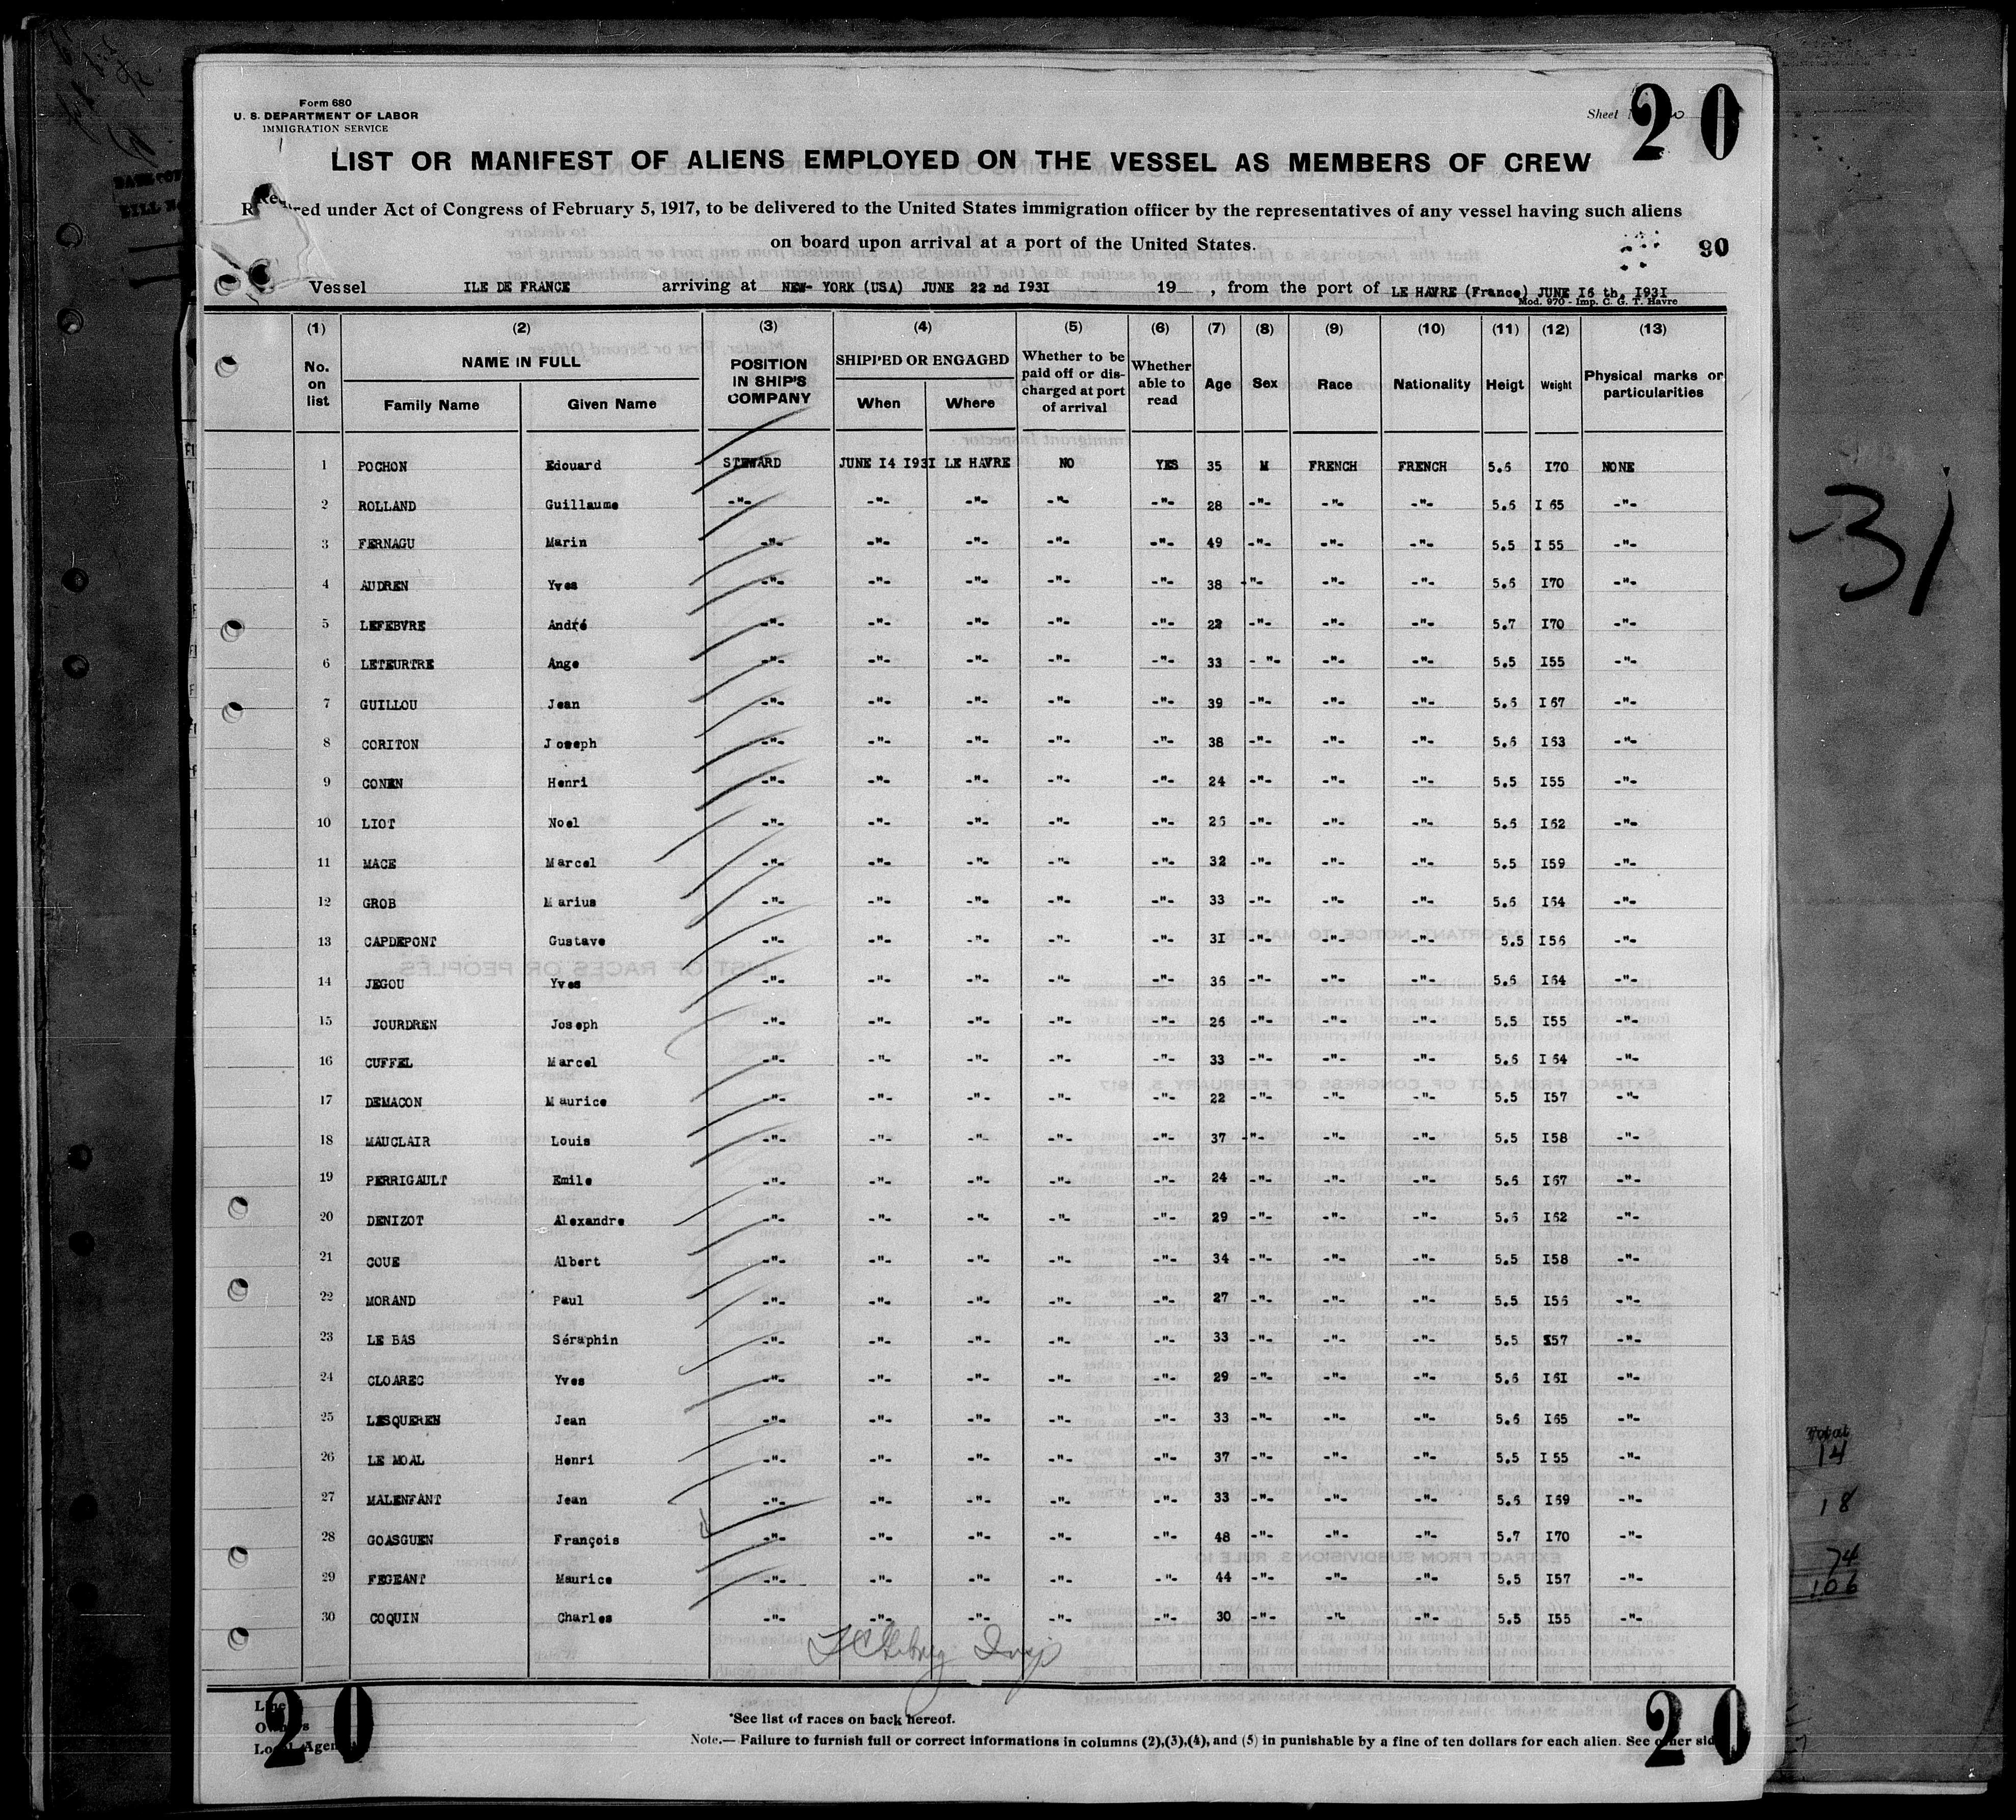 Form 680
U. S. DEPARTMENT OF LABOR
IMMIGRATION SERVICE
Sheet
20
LIST OR MANIFEST OF ALIENS EMPLOYED ON THE VESSEL AS MEMBERS OF CREW
Required under Act of Congress of February 5, 1917, to be delivered to the United States immigration officer by the representatives of any vessel having such aliens
on board upon arrival at a port of the United States.
90
Vessel ILE DE FRANCE arriving at NEW-YORK (USA) JUNE 22 nd I93I 19 , from the port of LE HAVRE (France) JUNE I6 th, I93I
Mod. 970 - Imp. C. G. T. Havre
(1) (2) (3) (4) (5) (6) (7) (8) (9) (10) (11) (12) (13)
No. on list NAME IN FULL Family Name Given Name POSITION IN SHIP'S COMPANY SHIPPED OR ENGAGED When Where Whether to be paid off or discharged at port of arrival Whether able to read Age Sex Race Nationality Heigt Weight Physical marks or particularities
1 POCHON Edouard STEWARD JUNE I4 I93I LE HAVRE NO YES 35 M FRENCH FRENCH 5.6 I70 NONE
2 ROLLAND Guillaume -"- -"- -"- -"- -"- 28 -"- -"- -"- 5.6 I 65 -"-
3 FERNAGU Marin -"- -"- -"- -"- -"- 49 -"- -"- -"- 5.5 I 55 -"-
4 AUDREN Yves -"- -"- -"- -"- -"- 38 -"- -"- -"- 5.6 I70 -"-
5 LEFEBVRE André -"- -"- -"- -"- -"- 22 -"- -"- -"- 5.7 I70 -"-
6 LETEURTRE Ange -"- -"- -"- -"- -"- 33 - "- -"- -"- 5.5 I55 -"-
7 GUILLOU Jean -"- -"- -"- -"- -"- 39 -"- -"- -"- 5.6 I67 -"-
8 CORITON Joseph -"- -"- -"- -"- -"- 38 -"- -"- -"- 5.6 I63 -"-
9 CONEN Henri -"- -"- -"- -"- -"- 24 -"- -"- -"- 5.5 I55 -"-
10 LIOT Noel -"- -"- -"- -"- -"- 26 -"- -"- -"- 5.6 I62 -"-
11 MACE Marcel -"- -"- -"- -"- -"- 32 -"- -"- -"- 5.5 I59 -"-
12 GROB Marius -"- -"- -"- -"- -"- 33 -"- -"- -"- 5.6 I64 -"-
13 CAPDEPONT Gustave -"- -"- -"- -"- -"- 3I -"- -"- -"- 5.5 I56 -"-
14 JEGOU Yves -"- -"- -"- -"- -"- 36 -"- -"- -"- 5.6 I64 -"-
15 JOURDREN Joseph -"- -"- -"- -"- -"- 26 -"- -"- -"- 5.5 I55 -"-
16 CUFFEL Marcel -"- -"- -"- -"- -"- 33 -"- -"- -"- 5.6 I 64 -"-
17 DEMACON Maurice -"- -"- -"- -"- -"- 22 -"- -"- -"- 5.5 I57 -"-
18 MAUCLAIR Louis -"- -"- -"- -"- -"- 37 -"- -"- -"- 5.5 I58 -"-
19 PERRIGAULT Emile -"- -"- -"- -"- -"- 24 -"- -"- -"- 5.6 I67 -"-
20 DENIZOT Alexandre -"- -"- -"- -"- -"- 29 -"- -"- -"- 5.6 I62 -"-
21 COUE Albert -"- -"- -"- -"- -"- 34 -"- -"- -"- 5.5 I58 -"-
22 MORAND Paul -"- -"- -"- -"- -"- 27 -"- -"- -"- 5.5 I56 -"-
23 LE BAS Séraphin -"- -"- -"- -"- -"- 33 -"- -"- -"- 5.5 I57 -"-
24 CLOAREC Yves -"- -"- -"- -"- -"- 29 -"- -"- -"- 5.6 I6I -"-
25 LESQUEREN Jean -"- -"- -"- -"- -"- 33 -"- -"- -"- 5.6 I65 -"-
26 LE MOAL Henri -"- -"- -"- -"- -"- 37 -"- -"- -"- 5.5 I 55 -"-
27 MALENFANT Jean -"- -"- -"- -"- -"- 33 -"- -"- -"- 5.6 I69 -"-
28 GOASGUEN François -"- -"- -"- -"- -"- 48 -"- -"- -"- 5.7 I70 -"-
29 FEGEANT Maurice -"- -"- -"- -"- -"- 44 -"- -"- -"- 5.5 I57 -"-
30 COQUIN Charles -"- -"- -"- -"- -"- 30 -"- -"- -"- 5.5 I55 -"-
Insp
31
Total
14
18
74
106
Line
Owners
Local Agent
20
*See list of races on back hereof.
Note.— Failure to furnish full or correct informations in columns (2),(3),(4), and (5) in punishable by a fine of ten dollars for each alien. See other side
20